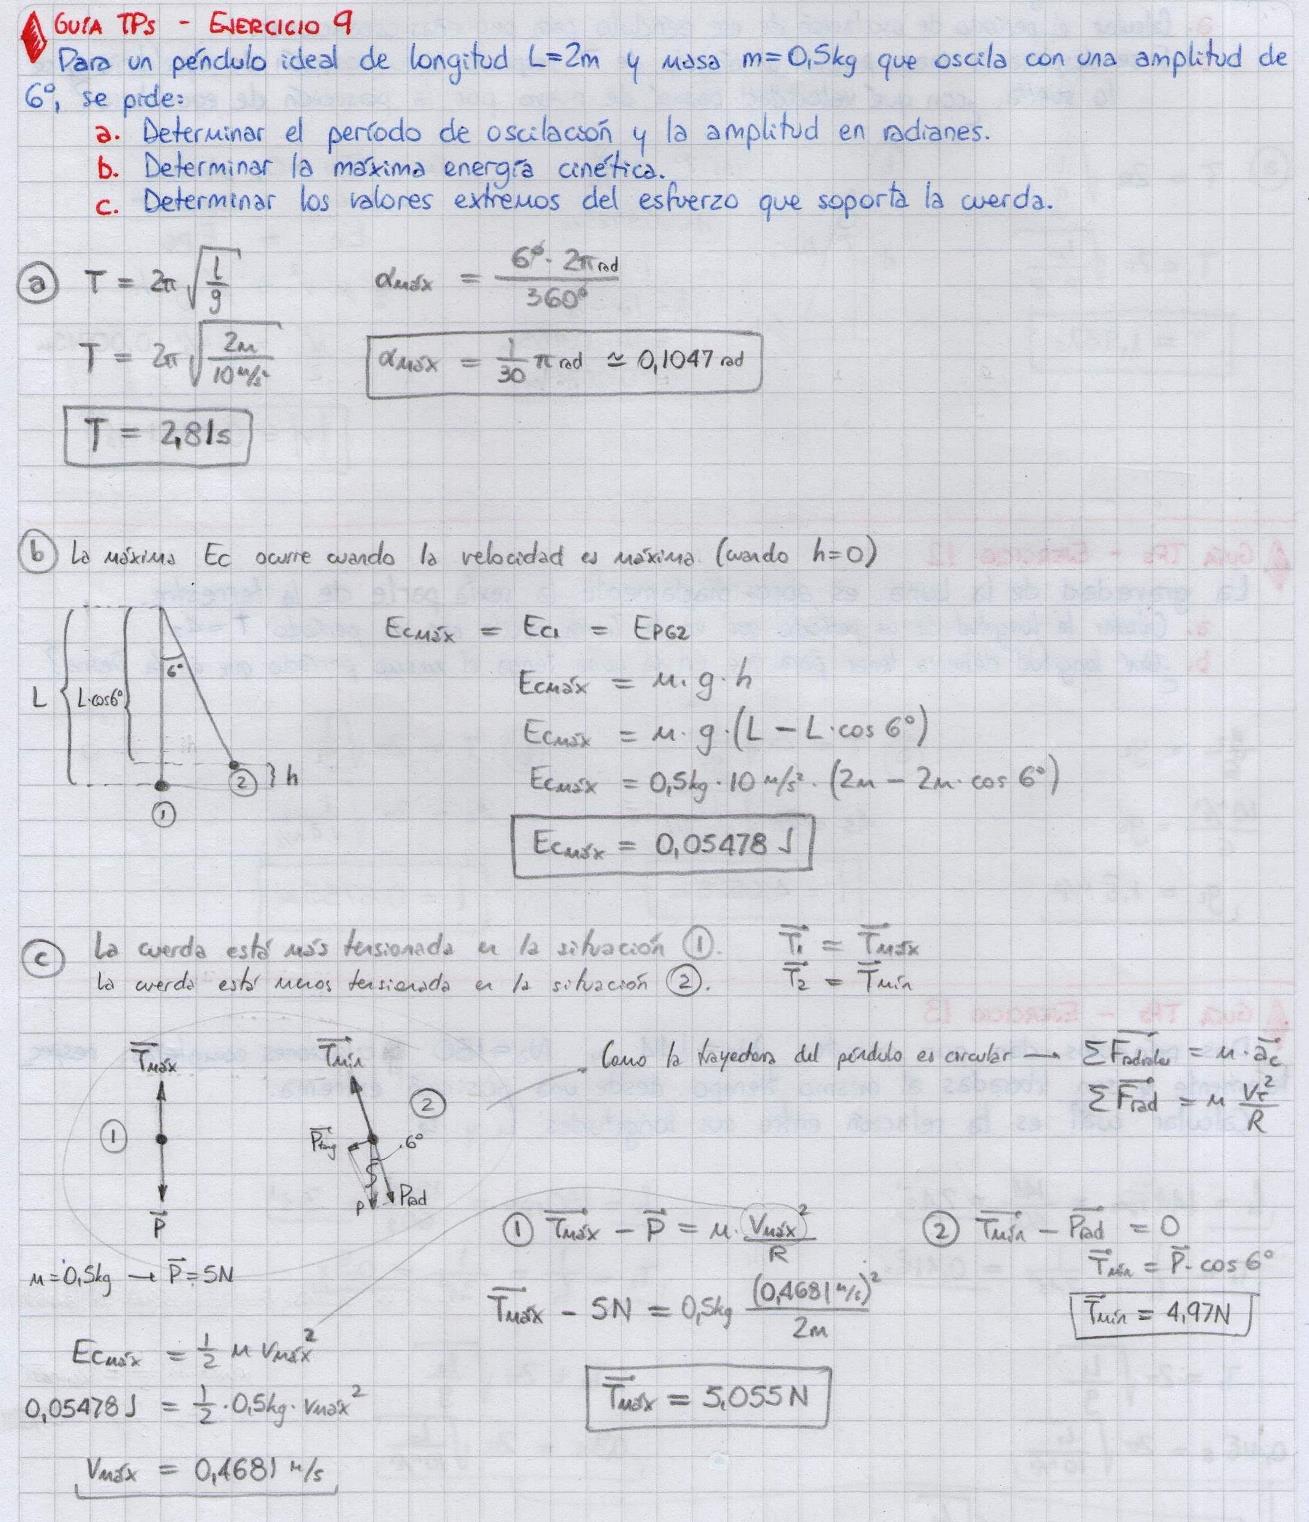 GUÍA TPs - EJERCICIO 9
Para un péndulo ideal de longitud L=2m y masa m=0,5kg que oscila con una amplitud de
6°, se pide:
a. Determinar el período de oscilación y la amplitud en radianes.
b. Determinar la máxima energía cinética.
c. Determinar los valores extremos del esfuerzo que soporta la cuerda.
a T = 2π √(L/g)
αmáx = 6° · 2π rad / 360°
T = 2π √(2m / 10 m/s²)
αmáx = 1/30 π rad ≃ 0,1047 rad
T = 2,81s
b La máxima Ec ocurre cuando la velocidad es máxima (cuando h=0)
L
L·cos6°
6°
h
1
2
Ecmáx = Ec1 = EPG2
Ecmáx = m · g · h
Ecmáx = m · g · (L - L · cos 6°)
Ecmáx = 0,5kg · 10 m/s² · (2m - 2m · cos 6°)
Ecmáx = 0,05478 J
c La cuerda está más tensionada en la situación 1. T1 = Tmáx
La cuerda está menos tensionada en la situación 2. T2 = Tmín
Tmáx
1
P
Tmín
2
Ptang
6°
P
Prad
Como la trayectoria del péndulo es circular → ΣFradiales = m · ac
ΣFrad = m VT²/R
m=0,5kg → P=5N
1 Tmáx - P = m · Vmáx²/R
Tmáx - 5N = 0,5kg (0,4681 m/s)²/2m
Tmáx = 5,055N
2 Tmín - Prad = 0
Tmín = P · cos 6°
Tmín = 4,97N
Ecmáx = 1/2 m Vmáx²
0,05478J = 1/2 · 0,5kg · Vmáx²
Vmáx = 0,4681 m/s